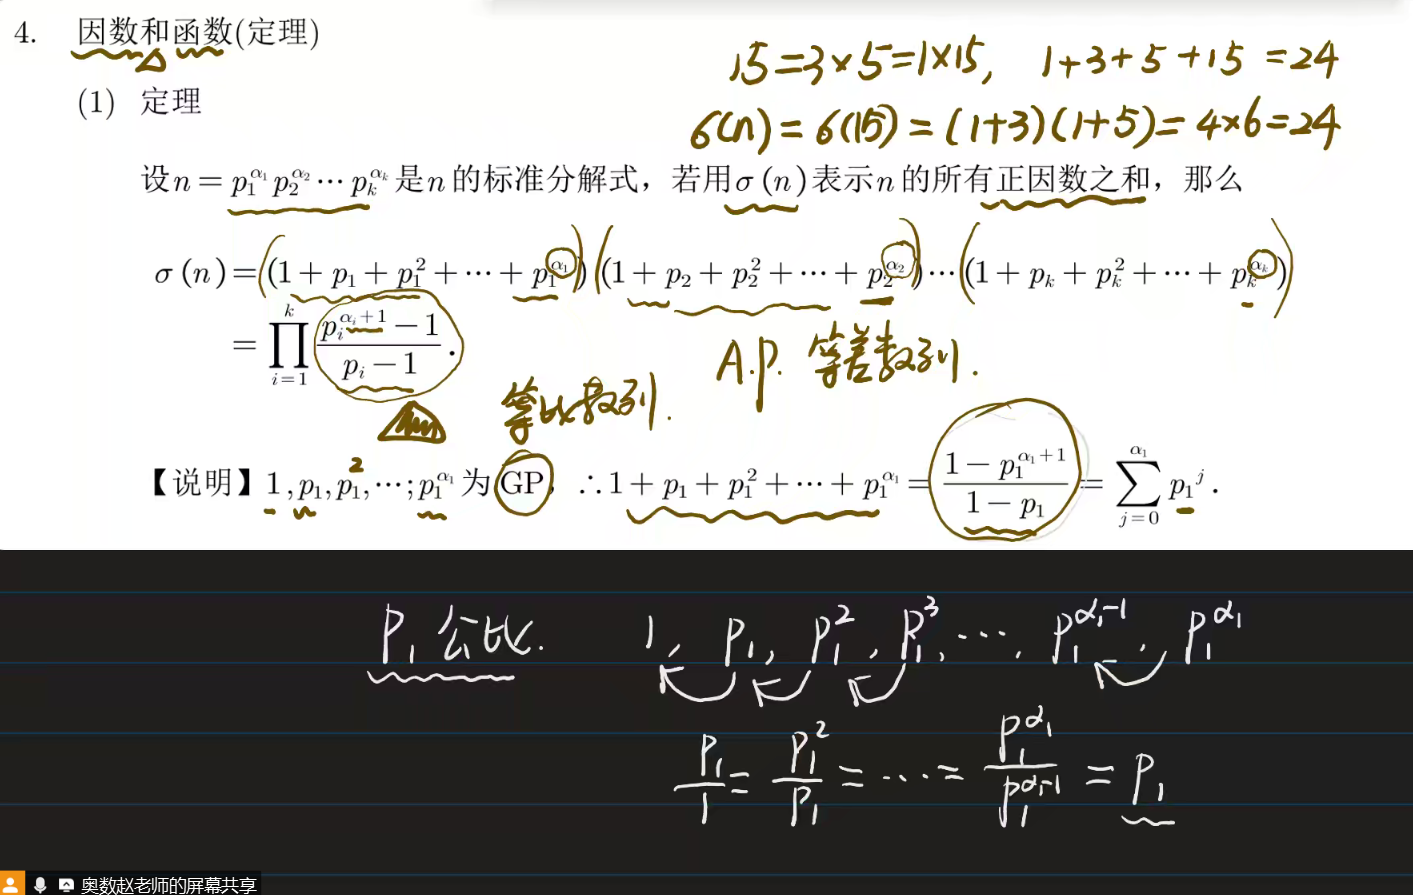 4. 因数和函数(定理)
15=3×5=1×15, 1+3+5+15=24
(1) 定理
6(n)=6(15)=(1+3)(1+5)=4×6=24
设n=p₁^α₁ p₂^α₂ ⋯ pₖ^αₖ 是n的标准分解式，若用σ(n)表示n的所有正因数之和，那么
σ(n)=(1+p₁+p₁²+⋯+p₁^α₁)(1+p₂+p₂²+⋯+p₂^α₂)⋯(1+pₖ+pₖ²+⋯+pₖ^αₖ)
=∏_{i=1}^{k} (pᵢ^(αᵢ+1)−1)/(pᵢ−1).
A.P. 等差数列.
等比数列.
【说明】1,p₁,p₁²,⋯;p₁^α₁为GP，∴1+p₁+p₁²+⋯+p₁^α₁=(1−p₁^(α₁+1))/(1−p₁)=∑_{j=0}^{α₁} p₁^j.
P₁公比. 1, p₁, p₁², p₁³, ⋯, p₁^(α₁-1), p₁^α₁
p₁/1=p₁²/p₁=⋯=p₁^α₁/p₁^(α₁-1)=p₁
奥数赵老师的屏幕共享